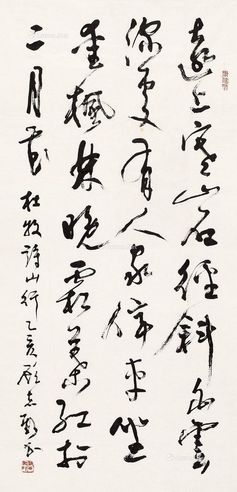 遠上寒山石徑斜白雲
深處有人家停車坐
愛楓林晚霜葉紅於
二月花
杜牧詩山行乙亥